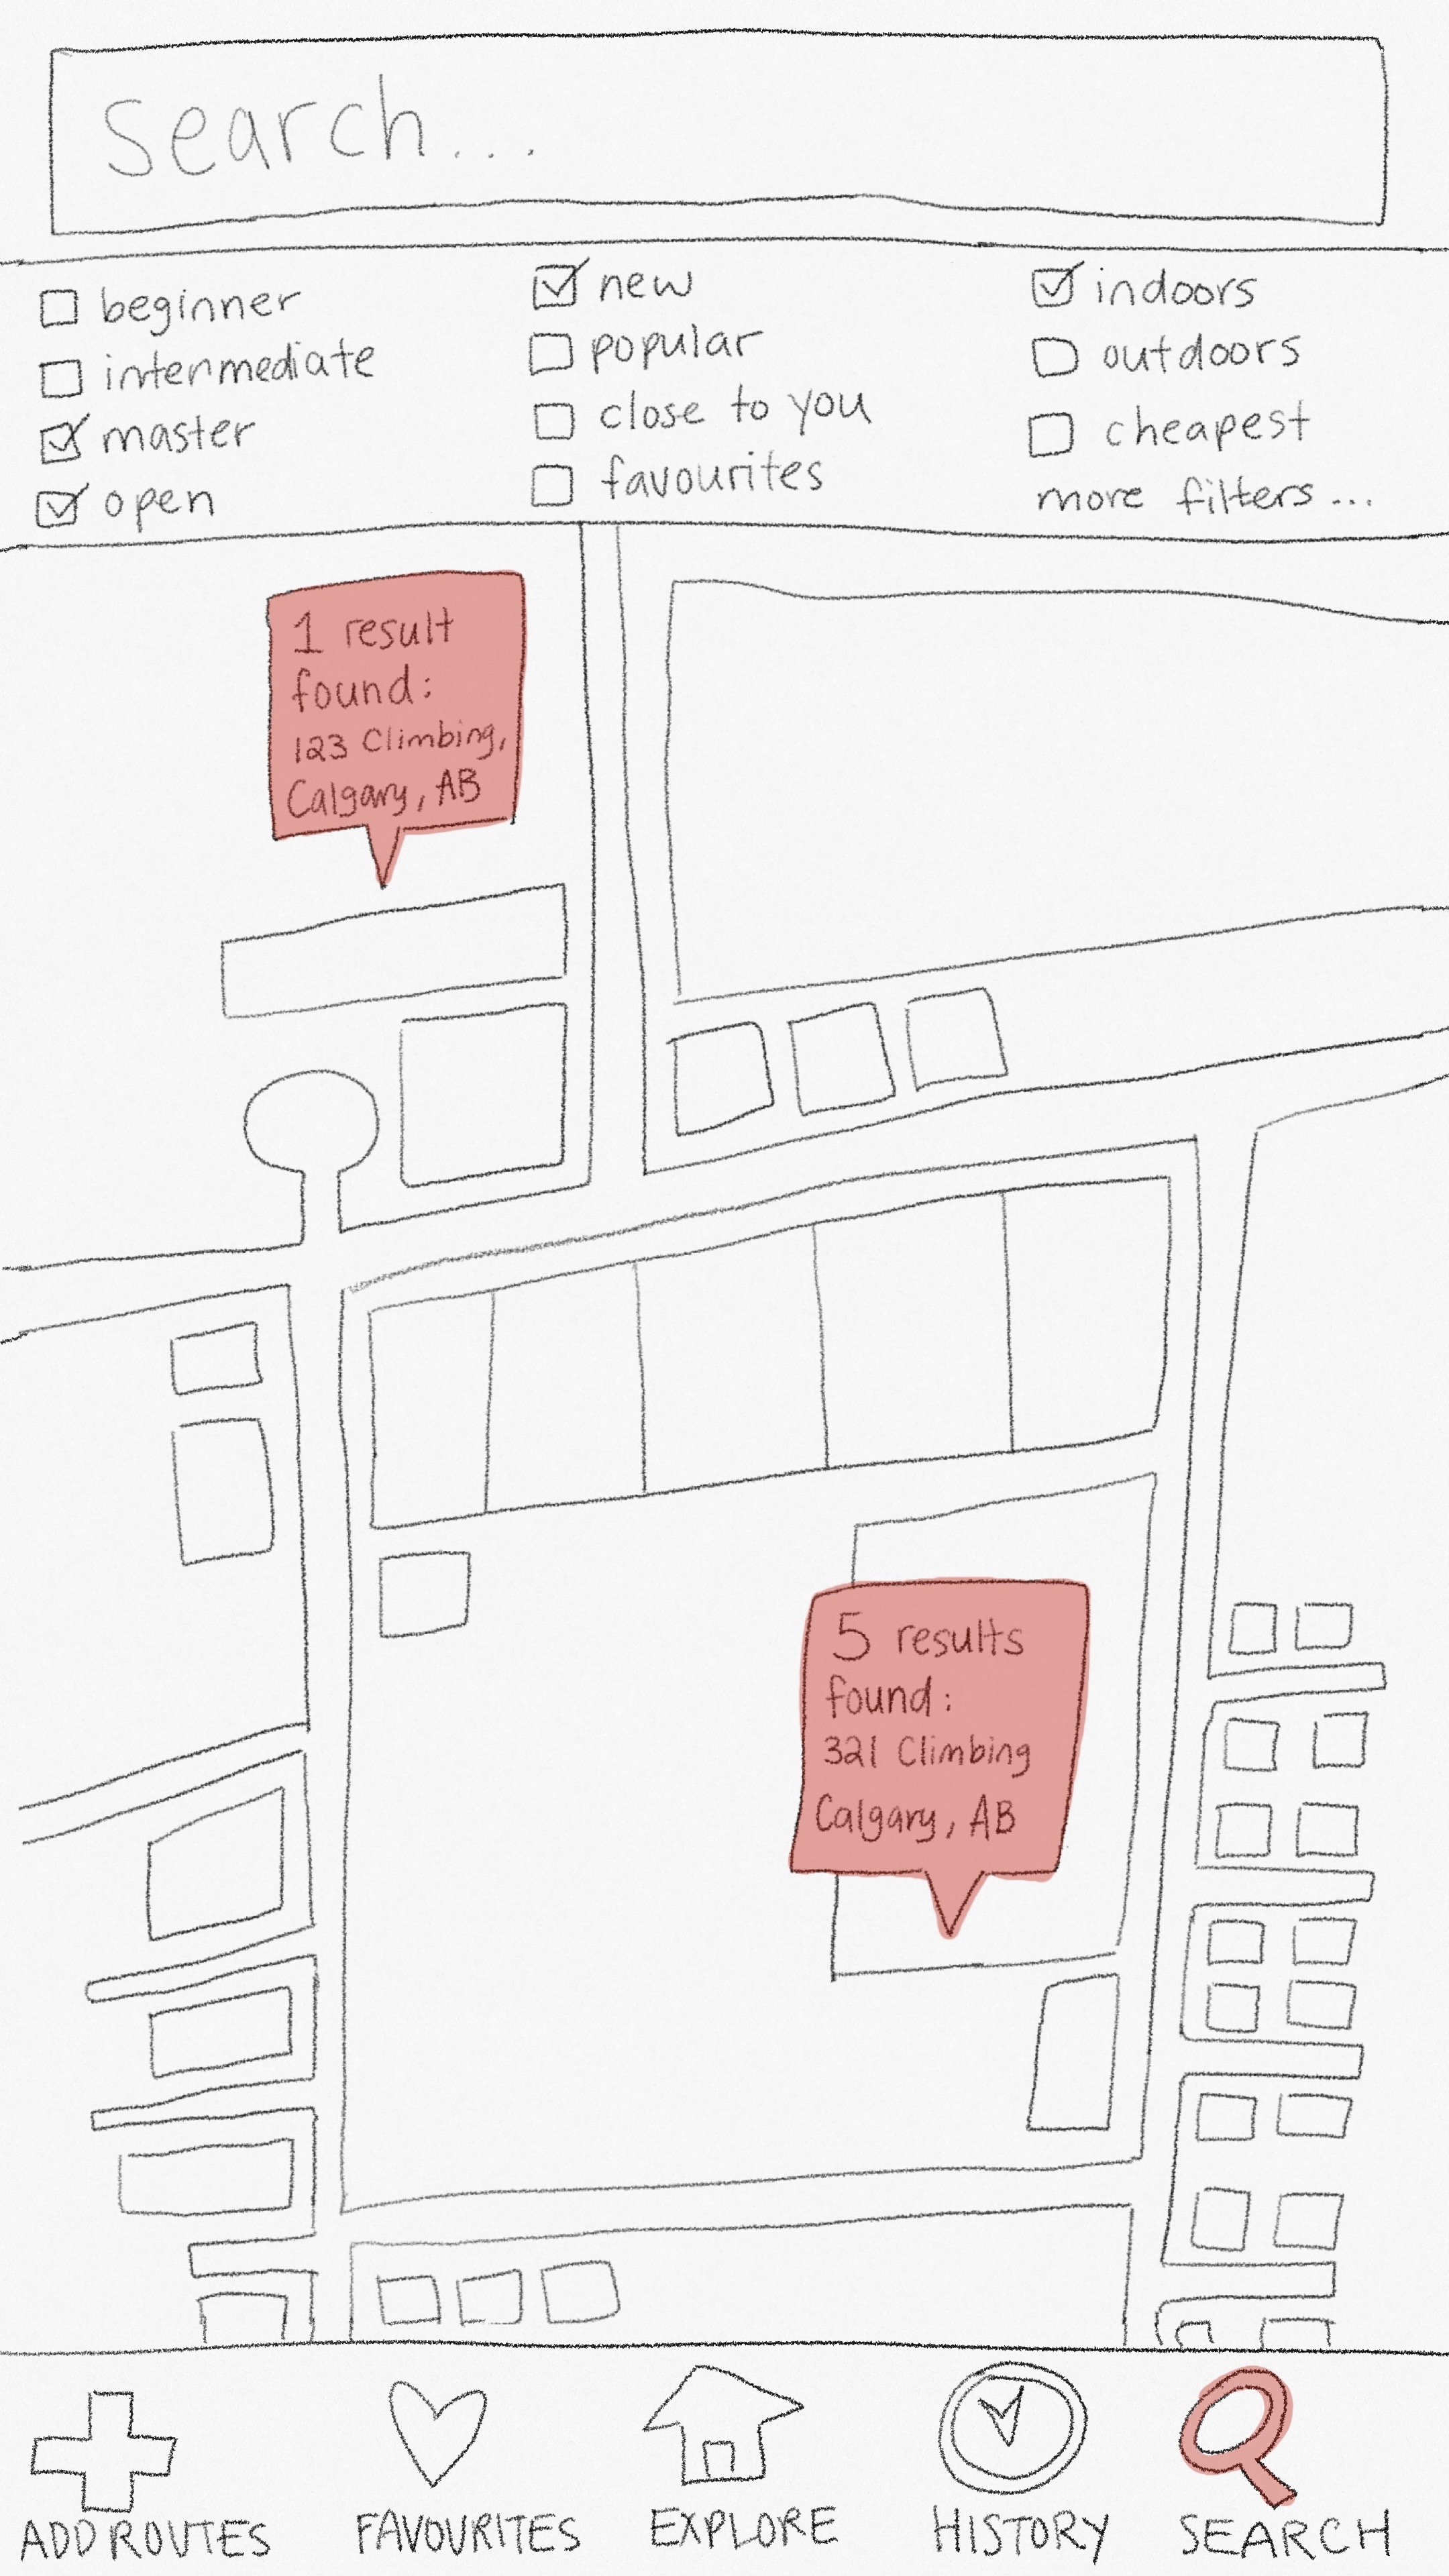 Search...
beginner
intermediate
master
open
new
popular
close to you
favourites
indoors
outdoors
cheapest
more filters...
1 result
found:
123 Climbing,
Calgary, AB
5 results
found:
321 Climbing
Calgary, AB
ADD ROUTES
FAVOURITES
EXPLORE
HISTORY
SEARCH